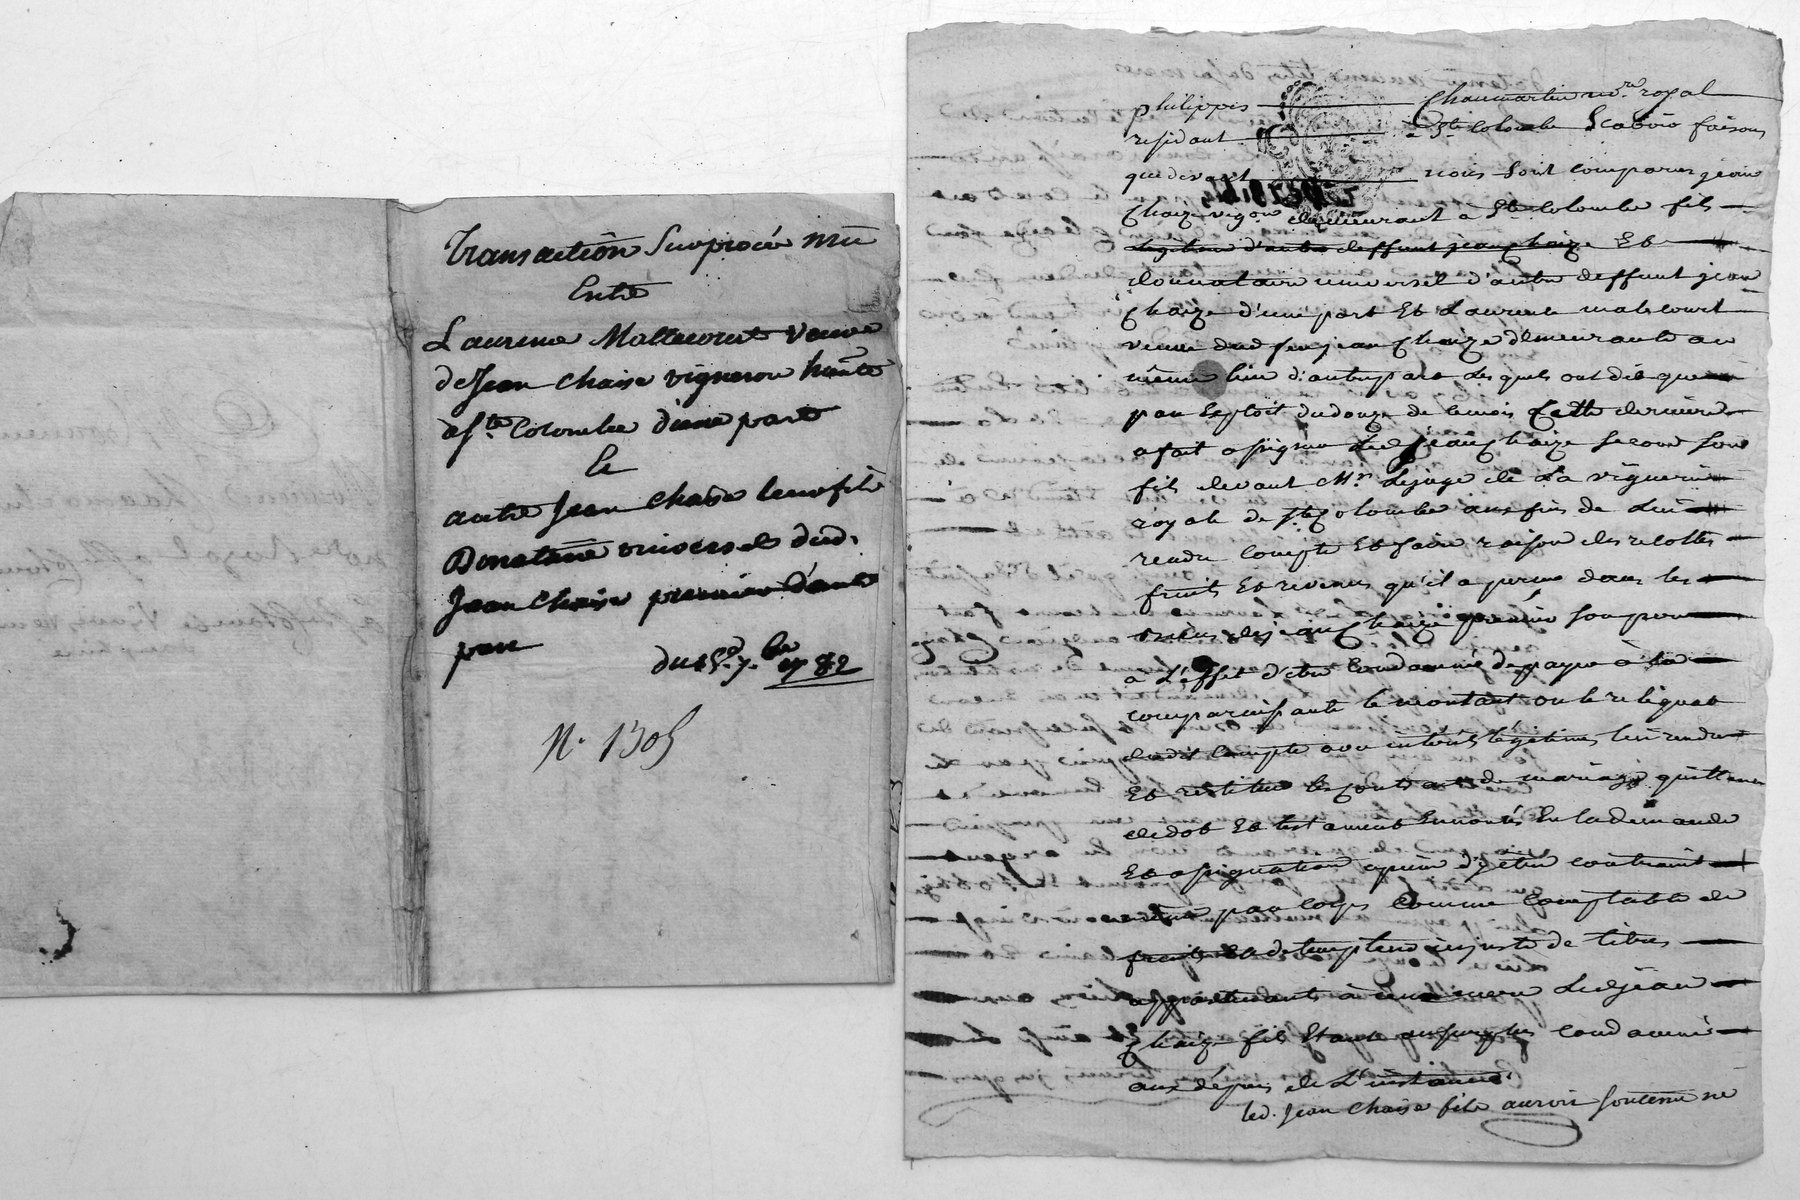 Transaction sur procès mû
Entre
Laurence Mallecourt veuve
de Jean Chaise vigneron
à Ste Colombe d'une part
Et
autre Jean Chaise leur fils
Donataire universel dud.
Jean Chaise premier d'autre
part
du 15e 7.bre 1782
N. 1305
philippe Chaumartin no.re royal
residant a Ste Colombe Scavoir faisons
que devant nous sont comparus jean
Chaize vigon demeurant à Ste Colombe fils
legitime d'autre deffunt jean Chaize Et
donnataire universel d'autre deffunt jean
Chaize d'une part Et Laurence malecourt
veuve dud feu jean Chaize demeurante au
même lieu d'autre part Lesquels ont dit que
par Exploit du douze de ce mois Cette derniere
a fait assigner Led jean Chaize second son
fils devant Mr Le juge de La viguerie
royale de Ste Colombe aux fins de Lui
rendre compte Et faire raison des recoltes
fruits Et revenus qu'il a perçu dans les
biens de jean Chaize premier son pere
a L'effet d'être Condamné de payer à La
comparaissante le montant ou le reliquat
dudit Compte avec interêts legitimes lui rendre
Et restituer les Contrats de mariage quittance
de dot Et testament Enoncés En la demande
Et assignation a peine d'y être contraint
même par corps comme Comptable de
fruits Et detempteur injuste de titres
appartenants à sa mere Led jean
Chaize fils Etante au surplus condamné
aux dépens de L'instance.
led. Jean Chaise fils auroit soutenu ne